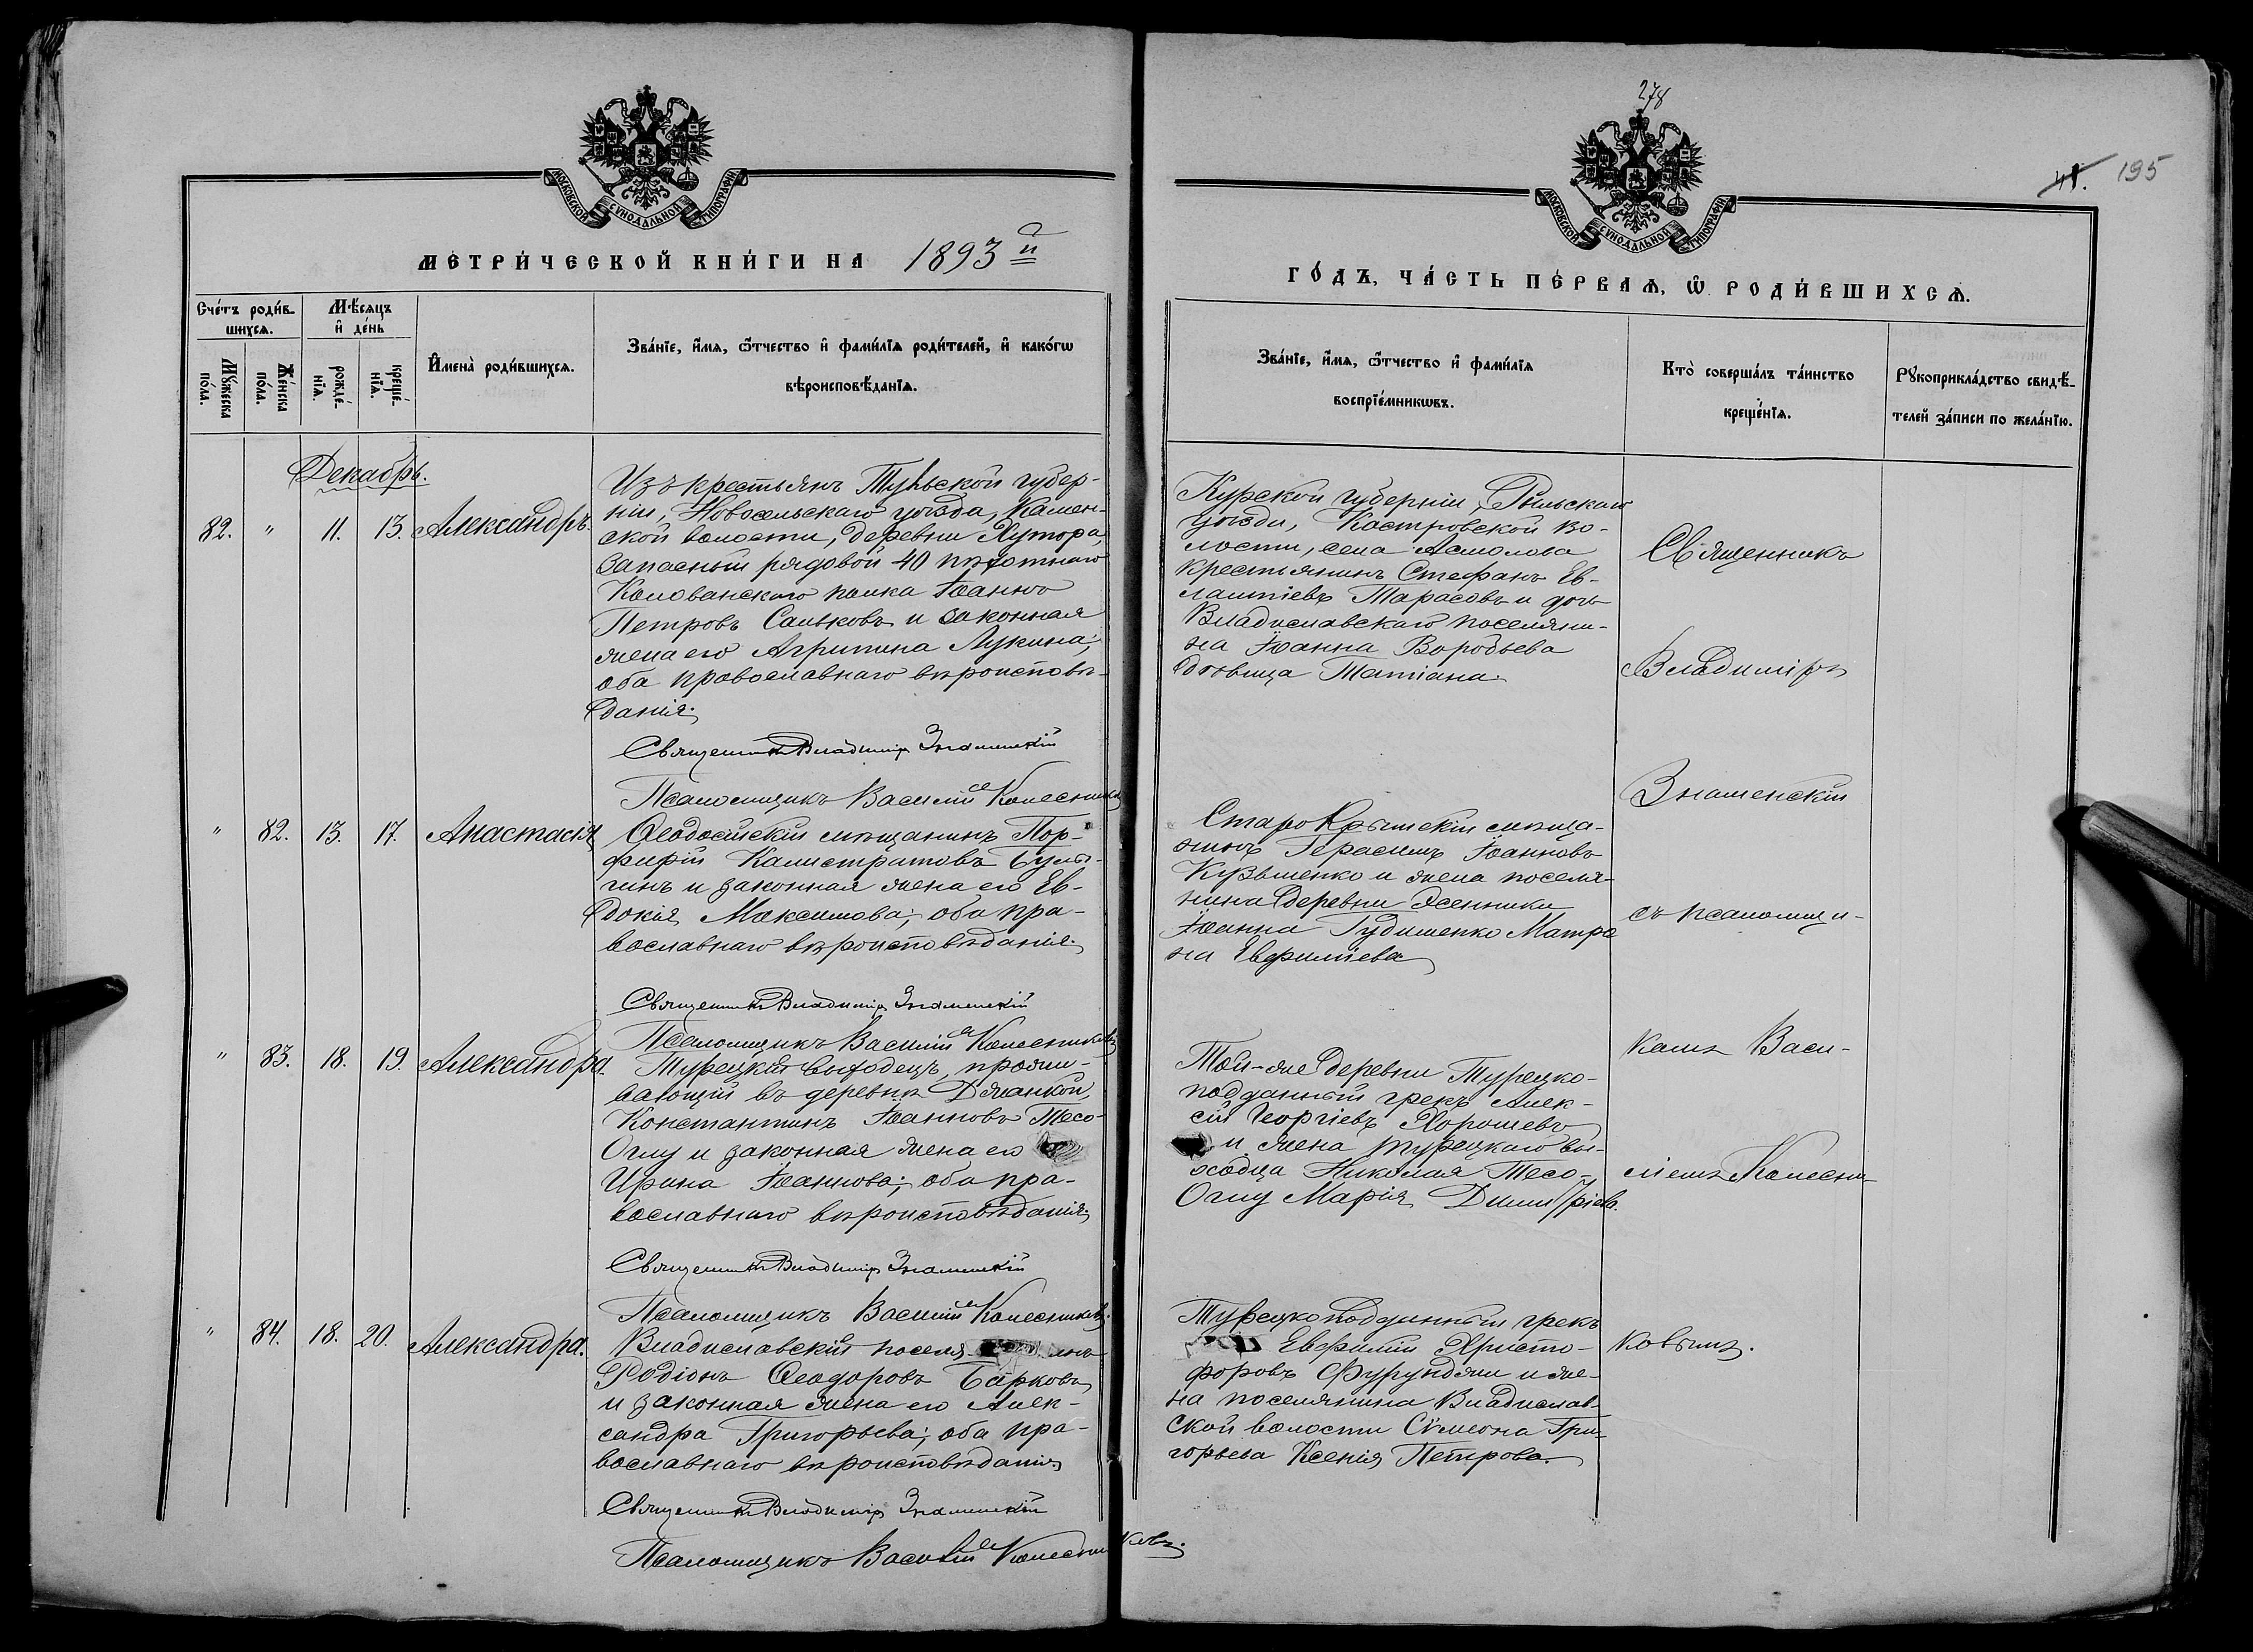 МОСКОВСКОЙ СУНОДАЛЬНОЙ ТИПОГРАФІИ
МЕТРИ́ЧЕСКОЙ КНИ́ГИ НА 1893й
Сче́тъ роди́в-
шихся.
Мѣ́сяцъ
и҆ де́нь
Мꙋ́жеска
по́ла.
Же́нска
по́ла.
рожде́-
нїѧ.
креще́-
нїѧ.
И҆мена̀ роди́вшихсѧ.
Зва́нїе, и҆́мѧ, ѻ҆́тчество и҆ фами́лїѧ роди́телей, и҆ како́гѡ
вѣроисповѣ́данїѧ.
Декабрь.
82. " 11. 13. Александръ.
Изъ крестьянъ Тульской губер-
ніи, Новосельскаго уѣзда, Камен-
ской волости, деревни Хутора,
запасный рядовой 40 пѣхотнаго
Колованскаго полка Іоаннъ
Петровъ Сальковъ и законная
жена его Агрипина Лукина;
оба православнаго вѣроисповѣ-
данія.
Священникъ Владиміръ Знаменскій
Псаломщикъ Василій Колесниковъ
" 82. 13. 17. Анастасія
Ѳеодосійскій мѣщанинъ Пор-
фирій Калистратовъ Булы-
гинъ и законная жена его Ев-
докія Максимова; оба пра-
вославнаго вѣроисповѣданія.
Священникъ Владиміръ Знаменскій
Псаломщикъ Василій Колесниковъ
" 83. 18. 19. Александра.
Турецкій выходецъ, прожи-
вающій въ деревнѣ Джанкой,
Константинъ Іоанновъ Тесо-
Оглу и законная жена его
Ирина Іоаннова; оба пра-
вославнаго вѣроисповѣданія;
Священникъ Владиміръ Знаменскій
Псаломщикъ Василій Колесниковъ.
" 84. 18. 20. Александра.
Владиславскій поселя
Родіонъ Ѳеодоровъ Барковъ
и законная жена его Алек-
сандра Григорьева; оба пра-
вославнаго вѣроисповѣданія.
Священникъ Владиміръ Знаменскій
Псаломщикъ Василій Колесниковъ.
278
41. 195
МОСКОВСКОЙ СУНОДАЛЬНОЙ ТИПОГРАФІИ
ГО́ДЪ, ЧА́СТЬ ПЕ́РВАѦ, Ѡ҆ РОДИ́ВШИХСѦ.
Зва́нїе, и҆́мѧ, ѻ҆́тчество и҆ фами́лїѧ
воспрїе́мникѡвъ.
Кто̀ соверша́лъ та́инство
креще́нїѧ.
Рꙋкоприкла́дство свидѣ́-
телей за́писи по жела́нїю.
Курской губерніи, Рыльскаго
уѣзда, Кастровской во-
лости, села Асмолова
крестьянинъ Стефанъ Ев-
лампіевъ Тарасовъ и дочь
Владиславскаго поселяни-
на Іоанна Воробьева
дѣвица Татіана.
Старо Крымскій мѣща-
нинъ Герасимъ Іоанновъ
Кузьменко и жена поселя-
нина деревни Ясенники
Іоанна Гудименко Матро
на Евфиміева
Той-же деревни Турецко-
подданный грекъ Алек-
сій Георгіевъ Хорошевъ
и жена турецкаго вы-
ходца Николая Тесо-
Оглу Марія Димитріева.
Турецкоподданный грекъ
Евфимій Христо-
форовъ Фурунджи и же-
на поселянина Владислав-
ской волости Сѵмеона Гри-
горьева Ксенія Петрова.
Священникъ
Владиміръ
Знаменскій
съ псаломщи-
комъ Васи-
ліемъ Колесни-
ковымъ.